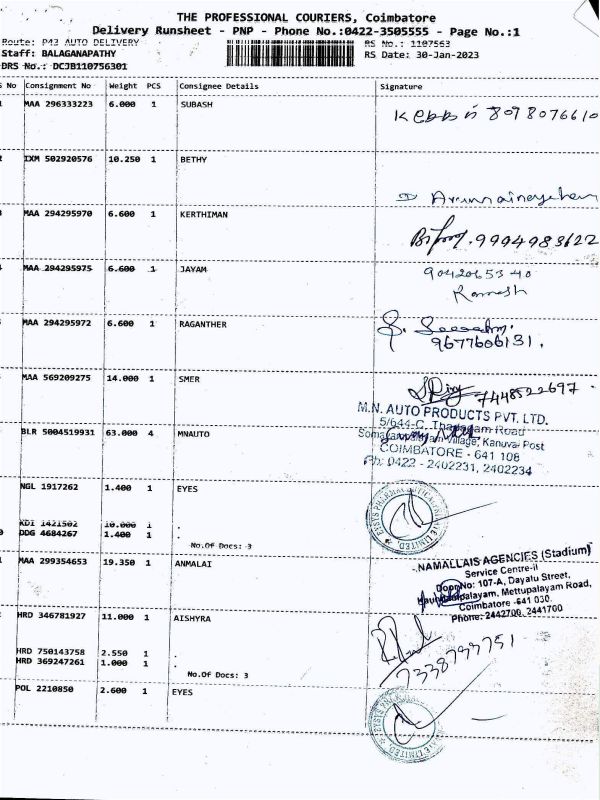 THE PROFESSIONAL COURIERS, Coimbatore
Delivery Runsheet - PNP - Phone No.:0422-3505555 - Page No.:1
Route: P43 AUTO DELIVERY RS No.: 1107563
Staff: BALAGANAPATHY RS Date: 30-Jan-2023
DRS No.: DCJB110756301
No Consignment No Weight PCS Consignee Details Signature
MAA 296333223 6.000 1 SUBASH
IXM 502920576 10.250 1 BETHY
MAA 294295970 6.600 1 KERTHIMAN
9994983622
MAA 294295975 6.600 1 JAYAM
90420653 40
Ramesh
MAA 294295972 6.600 1 RAGANTHER
9677606131.
MAA 569209275 14.000 1 SMER
7448522697.
M.N. AUTO PRODUCTS PVT. LTD.
5/644-C, Thadagam Road
BLR 5004519931 63.000 4 MNAUTO
Somayampalayam Village, Kanuvai Post
COIMBATORE - 641 108
Ph: 0422 - 2402231, 2402234
NGL 1917262 1.400 1 EYES
KDI 1421502 10.000 1 .
DDG 4684267 1.400 1 .
No.Of Docs: 3
MAA 299354653 19.350 1 ANMALAI
NAMALLAIS AGENCIES (Stadium)
Service Centre-II
Door No: 107-A, Dayalu Street,
Mettupalayam Road,
Coimbatore -641 030.
Phone: 2442700, 2441700
HRD 346781927 11.000 1 AISHYRA
HRD 750143758 2.550 1 .
HRD 369247261 1.000 1 .
No.Of Docs: 3
POL 2210850 2.600 1 EYES